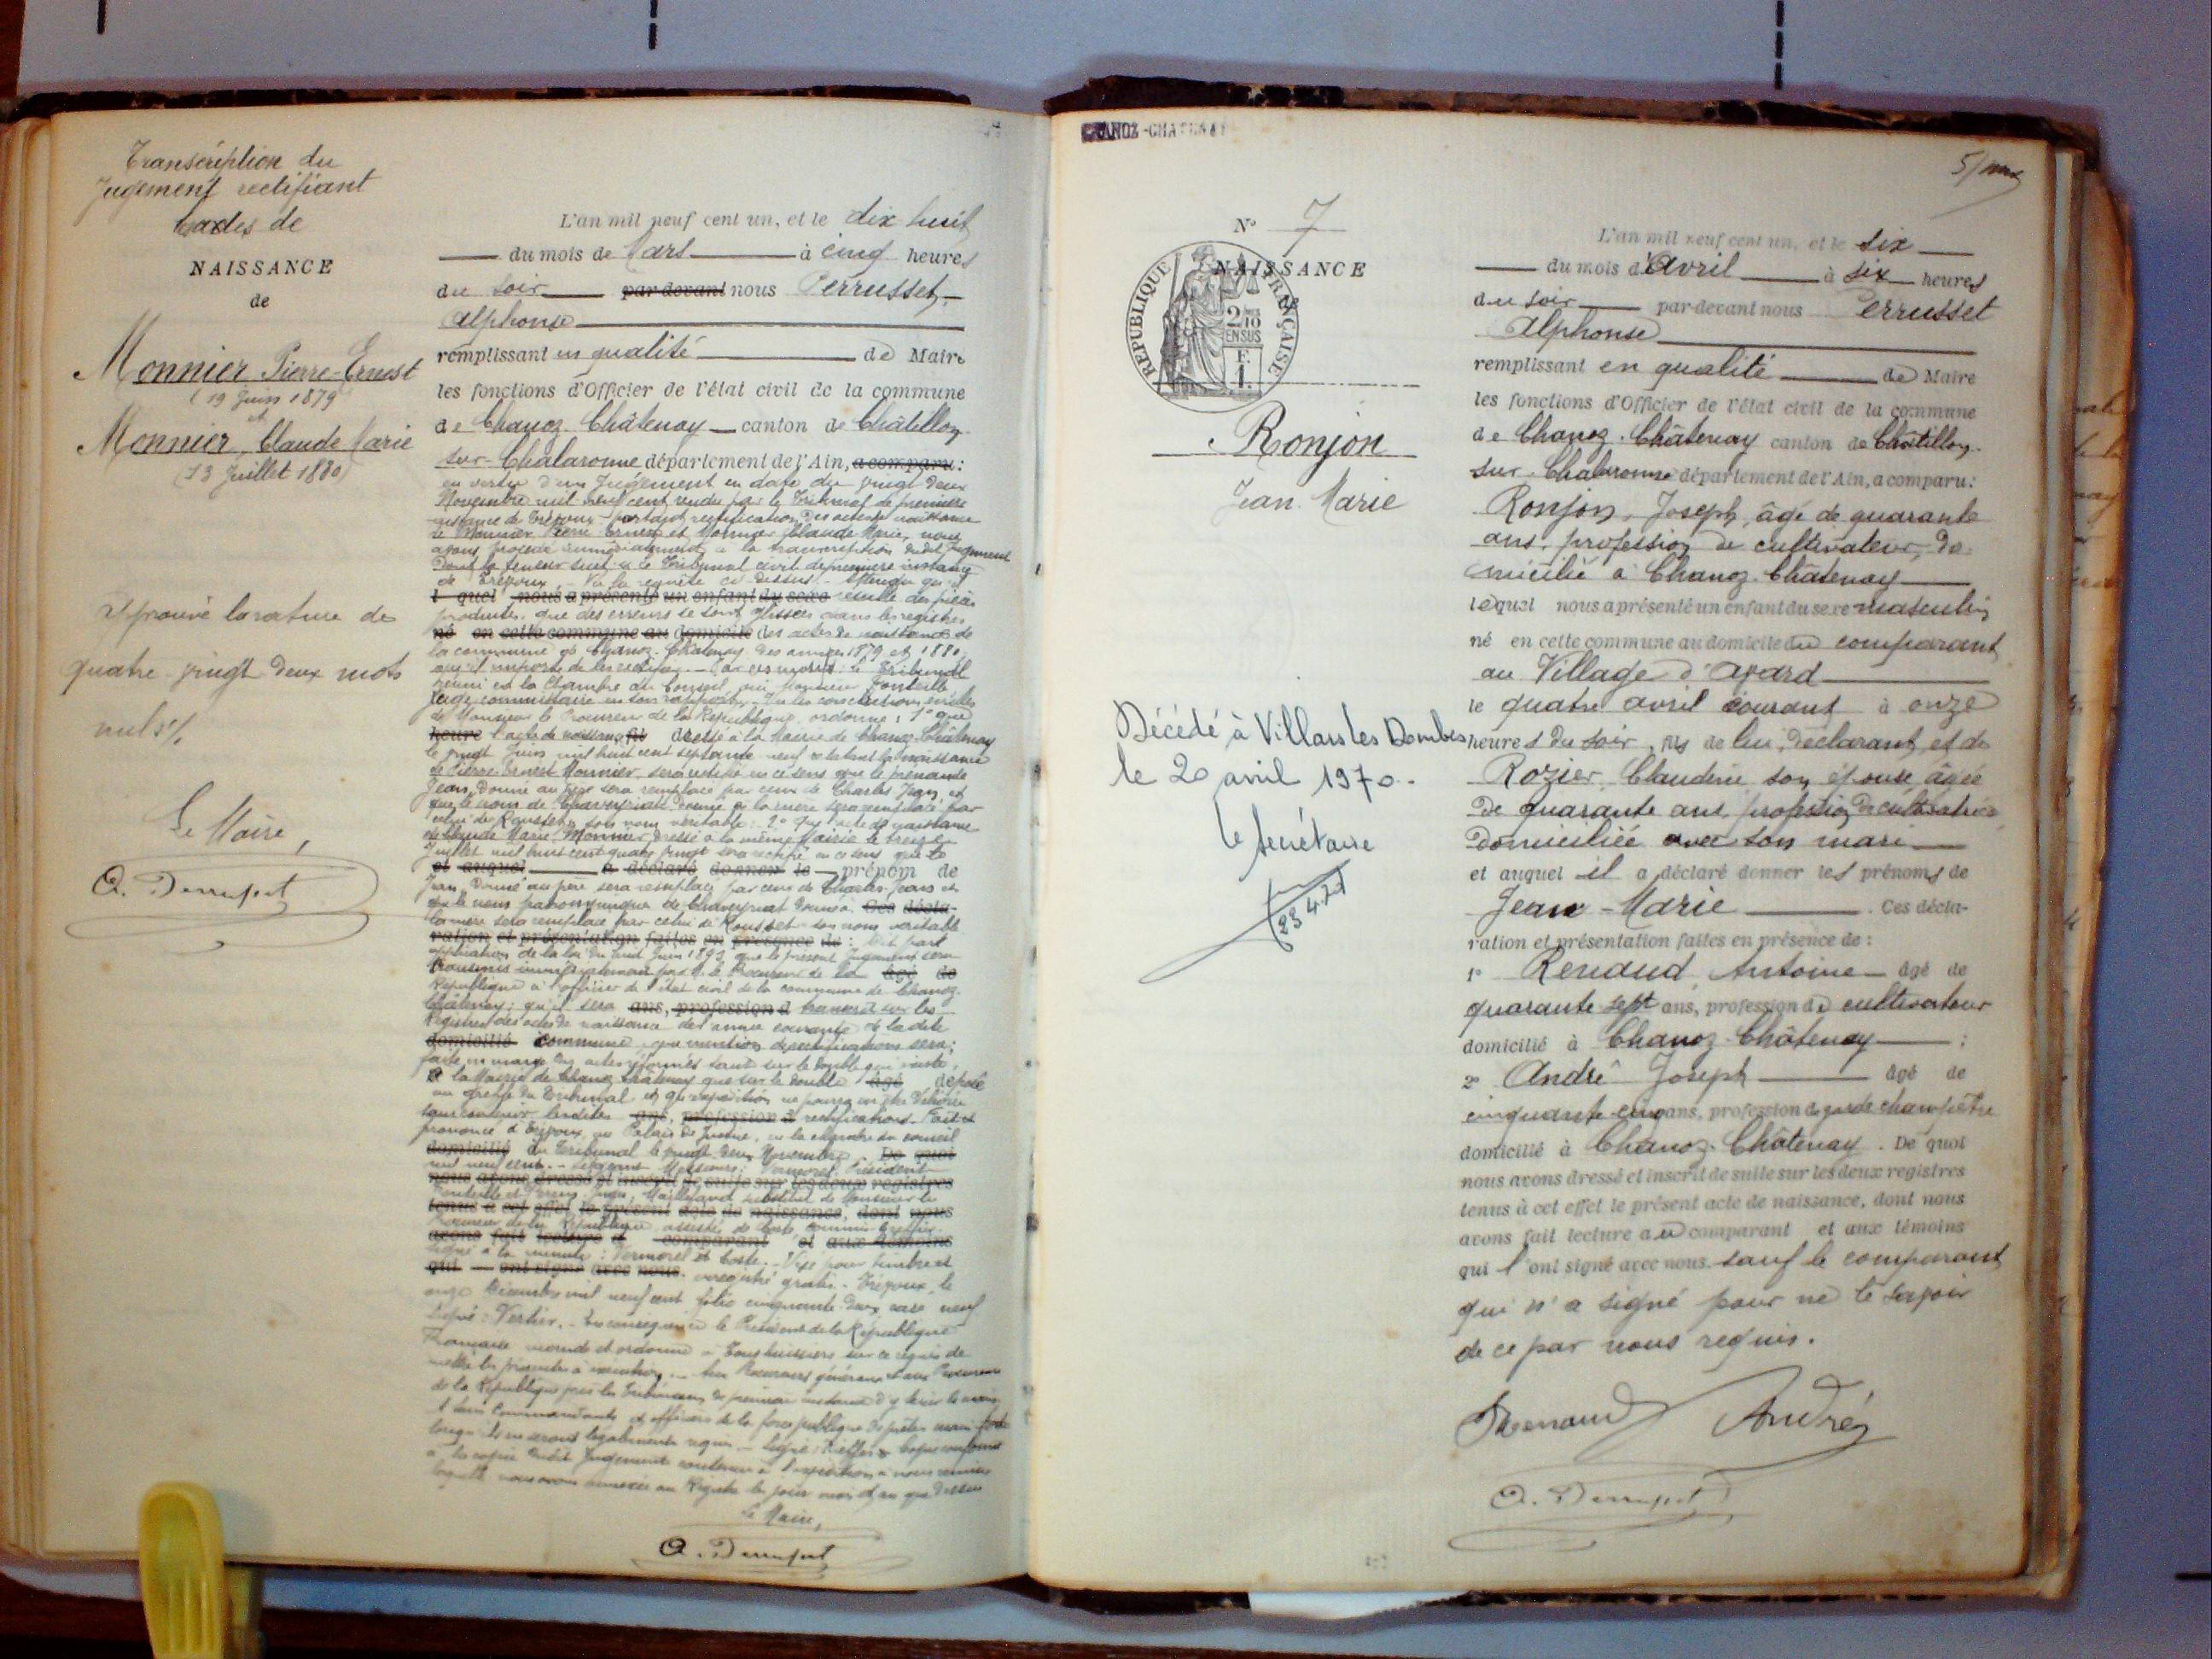 Transcription du
Jugement rectifiant
l'actes de
NAISSANCE
de
Monnier Pierre-Ernest
(19 Juin 1879
et
Monnier, Claude Marie
(13 Juillet 1880)
Approuvé la rature de
quatre vingt deux mots
nuls
Le Maire,
L'an mil neuf cent un, et le dix huit
du mois de Mars à cinq heures
du soir par devant nous Perrusset,
Alphonse
remplissant en qualité de Maire
les fonctions d'Officier de l'état civil de la commune
de Chanoz Châtenay canton de Châtillon
sur-Chalaronne département de l'Ain, a comparu:
en vertu d'un Jugement en date du vingt deux
Novembre mil neuf cent rendu par le Tribunal de première
instance de Trévoux portant rectification des actes de naissance
de Monnier Pierre Ernest et Monnier Claude Marie, nous
avons procédé immédiatement à la transcription dudit Jugement
dont la teneur suit: le Tribunal civil de première instance
de Trévoux, - Vu la requête ci-dessus - Attendu qu'il
l quel nous a présenté un enfant du sexe résulte des pièces
produites, que des erreurs se sont glissées dans les registres
né en cette commune au domicile des actes de naissance de
la commune de Chanoz-Châtenay des années 1879 et 1880
qu'il importe de les rectifier. - Par ces motifs: le Tribunal
réuni en la Chambre du Conseil, ouï Monsieur Fonteille
Juge-commissaire en son rapport, - Vu les conclusions écrites
de Monsieur le Procureur de la République, ordonne: 1° que
heure l'acte de naissance fils dressé à la Mairie de Chanoz-Châtenay
le vingt Juin mil huit cent septante neuf relatant la naissance
de Pierre Ernest Monnier sera rectifié en ce sens que le prénom de
Jean, donné au père sera remplacé par ceux de Charles Jean, et
que le nom de Chaveyriat donné à la mère sera remplacé par
celui de Rousset son nom véritable: 2° que l'acte de naissance
de Claude Marie Monnier dressé à la même Mairie le treize
Juillet mil huit cent quatre vingt sera rectifié en ce sens que le
et auquel a déclaré donner le prénom de
Jean, donné au père sera remplacé par ceux de Charles Jean et
que le nom patronymique de Chaveyriat donné à Ces décla-
la mère sera remplacé par celui de Rousset son nom véritable
ration et présentation faites en présence de: fait par
application de la loi du huit Juin 1893 que le présent Jugement sera
transmis immédiatement par M. le Procureur de la âgé de
République à l'officier de l'état civil de la commune de Chanoz-
Châtenay; qu'il sera ans, profession d transcrit sur les
Registres des actes de naissance de l'année courante de la dite
domicilié commune, que mention des rectifications sera
faite en marge des actes réformés tant sur le double qui existe
à la Mairie de Chanoz Châtenay que sur le double âgé déposé
au greffe du Tribunal et qu'expédition ne pourra en être délivrée
sans contenir lesdites ans, profession d rectifications. Fait et
prononcé à Trévoux, au Palais de Justice, en la chambre du conseil
domicilié du Tribunal le vingt deux Novembre De quoi
mil neuf cent. - Messieurs: Vermorel Président
nous avons dressé et inscrit de suite sur les deux registres
Fonteille et Juges, substitut de Monsieur le
tenus à cet effet le présent acte de naissance, dont nous
Procureur de la République assistés de Coste commis-greffier.
avons fait lecture et comparant et aux témoins
signé à la minute: Vermorel et Coste. - Visé pour timbre et
qui ont signé avec nous. enregistré gratis. Trévoux, le
onze Décembre mil neuf cent folio cinquante deux case neuf
signé: Vertier. - En conséquence le Président de la République
Française mande et ordonne à tous huissiers sur ce requis de
mettre les présentes à exécution. - Aux Procureurs généraux et aux Procureurs
de la République près les Tribunaux de première instance d'y tenir la main
A tous Commandants et officiers de la force publique de prêter main forte
lorsqu'ils en seront légalement requis. - Signé: Copie conforme
à la copie dudit Jugement contenue à l'expédition à nous remise
laquelle nous avons annexée au Registre les jour mois et an que dessus
Le Maire,
CHANOZ-CHATENAY
5/
N° 7
NAISSANCE
RÉPUBLIQUE FRANÇAISE
2/10
EN SUS
F.
1.
Ronjon
Jean Marie
Décédé à Villars les Dombes
le 20 avril 1970.
Le Secrétaire
L'an mil neuf cent un, et le six
du mois d'Avril à six heures
du soir par-devant nous Perrusset
Alphonse
remplissant en qualité de Maire
les fonctions d'Officier de l'état civil de la commune
de Chanoz-Châtenay canton de Châtillon-
sur Chalaronne département de l'Ain, a comparu:
Ronjon, Joseph, âgé de quarante
ans, profession de cultivateur, do-
micilié à Chanoz-Châtenay
lequel nous a présenté un enfant du sexe masculin
né en cette commune au domicile du comparant
au Village d'Avard
le quatre avril courant à onze
heures du soir, fils de lui, déclarant, et de
Rozier, Claudine son épouse âgée
de quarante ans, profession de cultivatrice
domiciliée avec son mari
et auquel il a déclaré donner les prénoms de
Jean-Marie. Ces décla-
ration et présentation faites en présence de:
1° Renaud, Antoine âgé de
quarante sept ans, profession de cultivateur
domicilié à Chanoz-Châtenay;
2° André Joseph âgé de
cinquante-cinq ans, profession de garde champêtre
domicilié à Chanoz-Châtenay. De quoi
nous avons dressé et inscrit de suite sur les deux registres
tenus à cet effet le présent acte de naissance, dont nous
avons fait lecture au comparant et aux témoins
qui l'ont signé avec nous. sauf le comparant
qui n'a signé pour ne le savoir
de ce par nous requis.
Renaud André